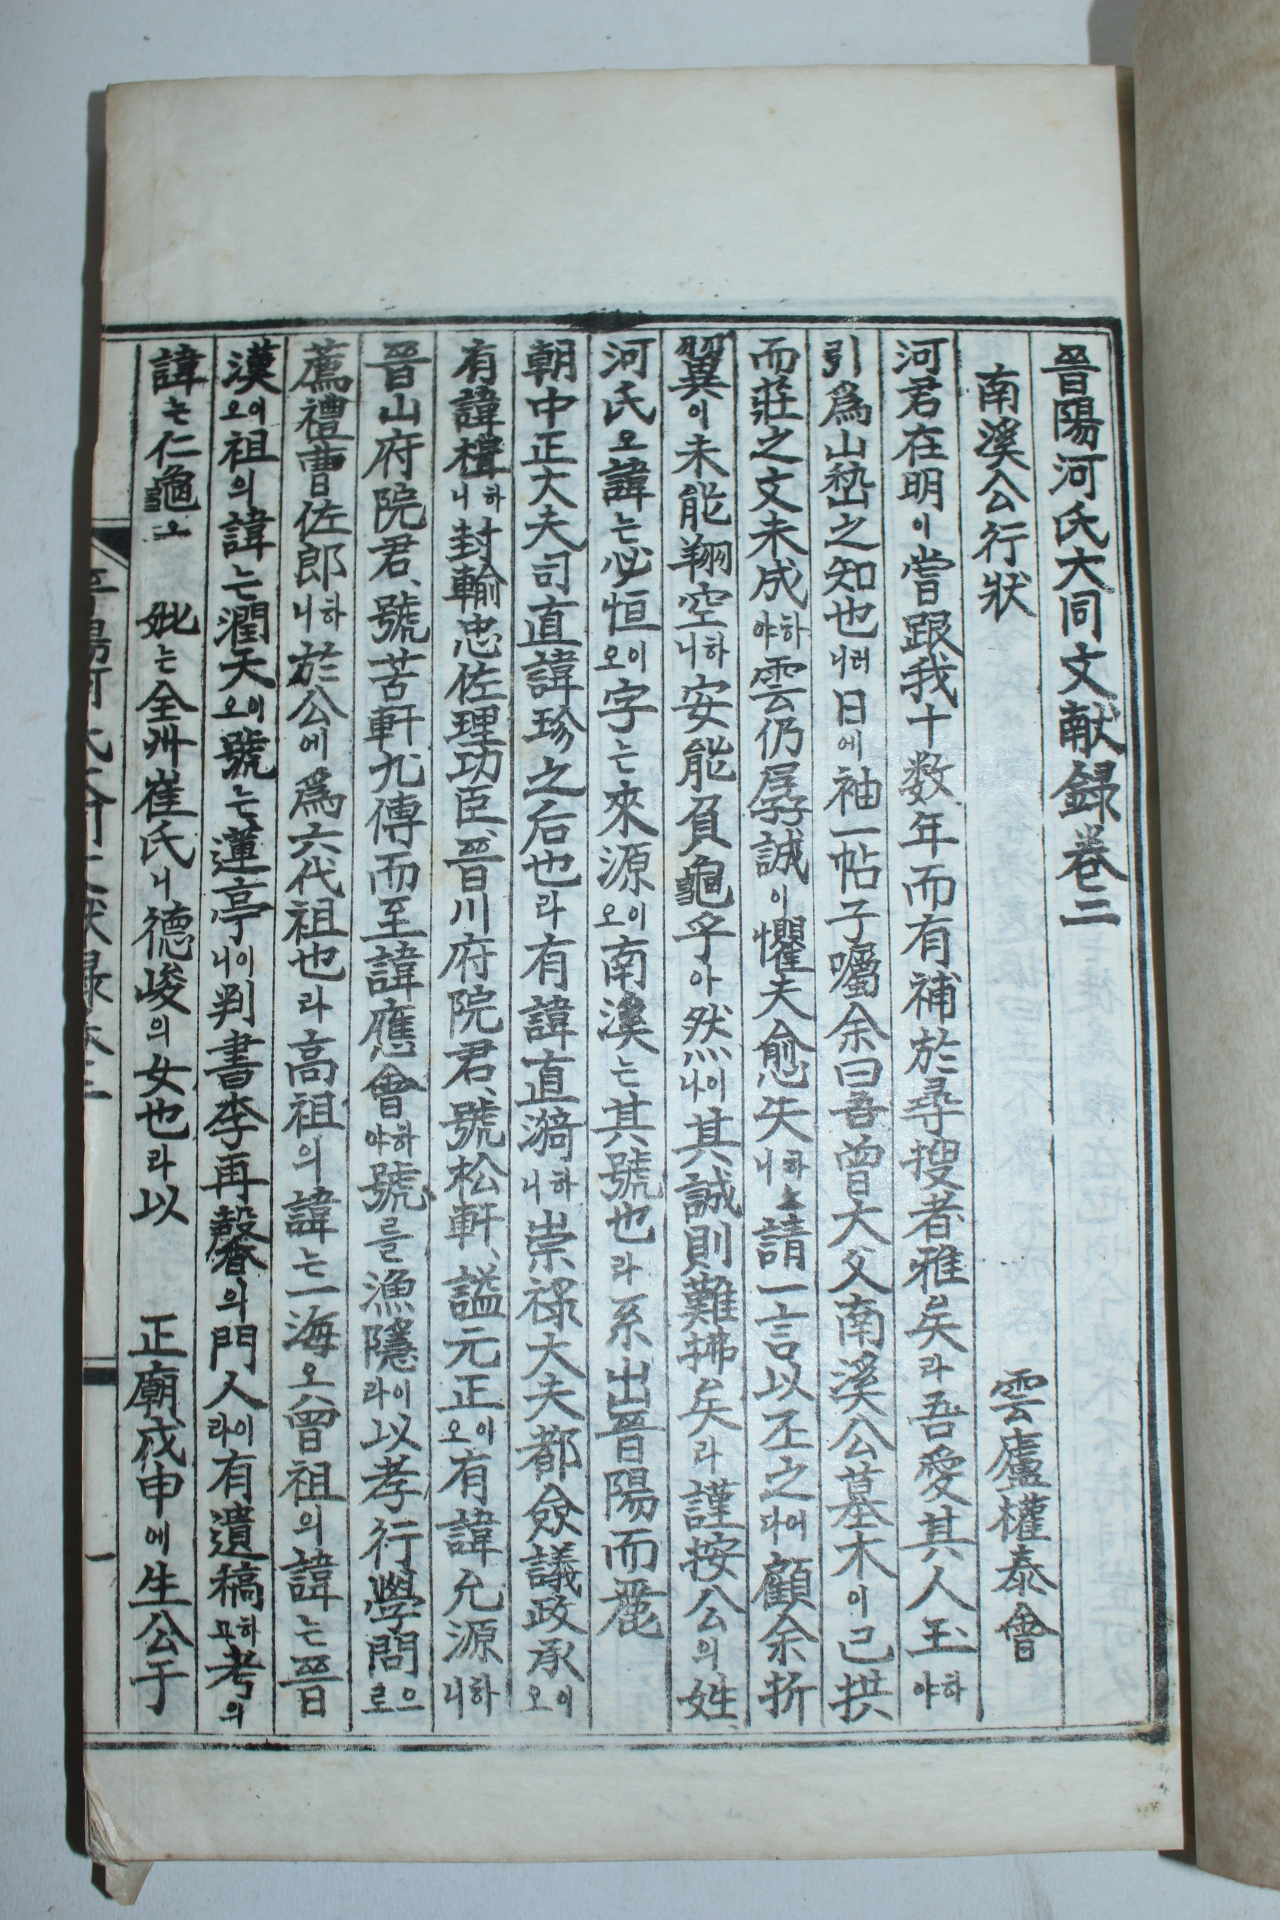 晉陽河氏大同文献録卷二
南溪公行狀
雲廬權泰會
河君在明이嘗跟我十数年而有補於尋搜者雅矣라吾愛其人玉하야
引爲山㙯之知也러니日에袖一帖子囑余曰吾曾大父南溪公墓木이已拱
而莊之文未成하야雲仍孱誠이懼夫愈失하니請一言以丕之어다顧余折
翼이未能翔空하니安能負龜乎아然이나其誠則難拂矣라謹按公의姓
河氏오諱는必恒이오字는來源이오南溪는其號也라系出晉陽而麗
朝中正大夫司直諱珍之后也라有諱直漪하니崇禄大夫都僉議政承이오
有諱楫하니封輸忠佐理功臣、晉川府院君、號松軒、謚元正이오有諱允源하니
晉山府院君、號苦軒九傳而至諱應會하야號를漁隱이라以孝行學問으로
薦禮曹佐郎하니於公에爲六代祖也라高祖의諱는一海오曾祖의諱는晉
漢이오祖의諱는潤天이오號는蓮亭이니判書李再馨의門人이라有遺稿하고考의
諱는仁龜오 妣는全州崔氏니德峻의女也라以 正廟戊申에生公于
晉陽河氏大同文献録卷二
一